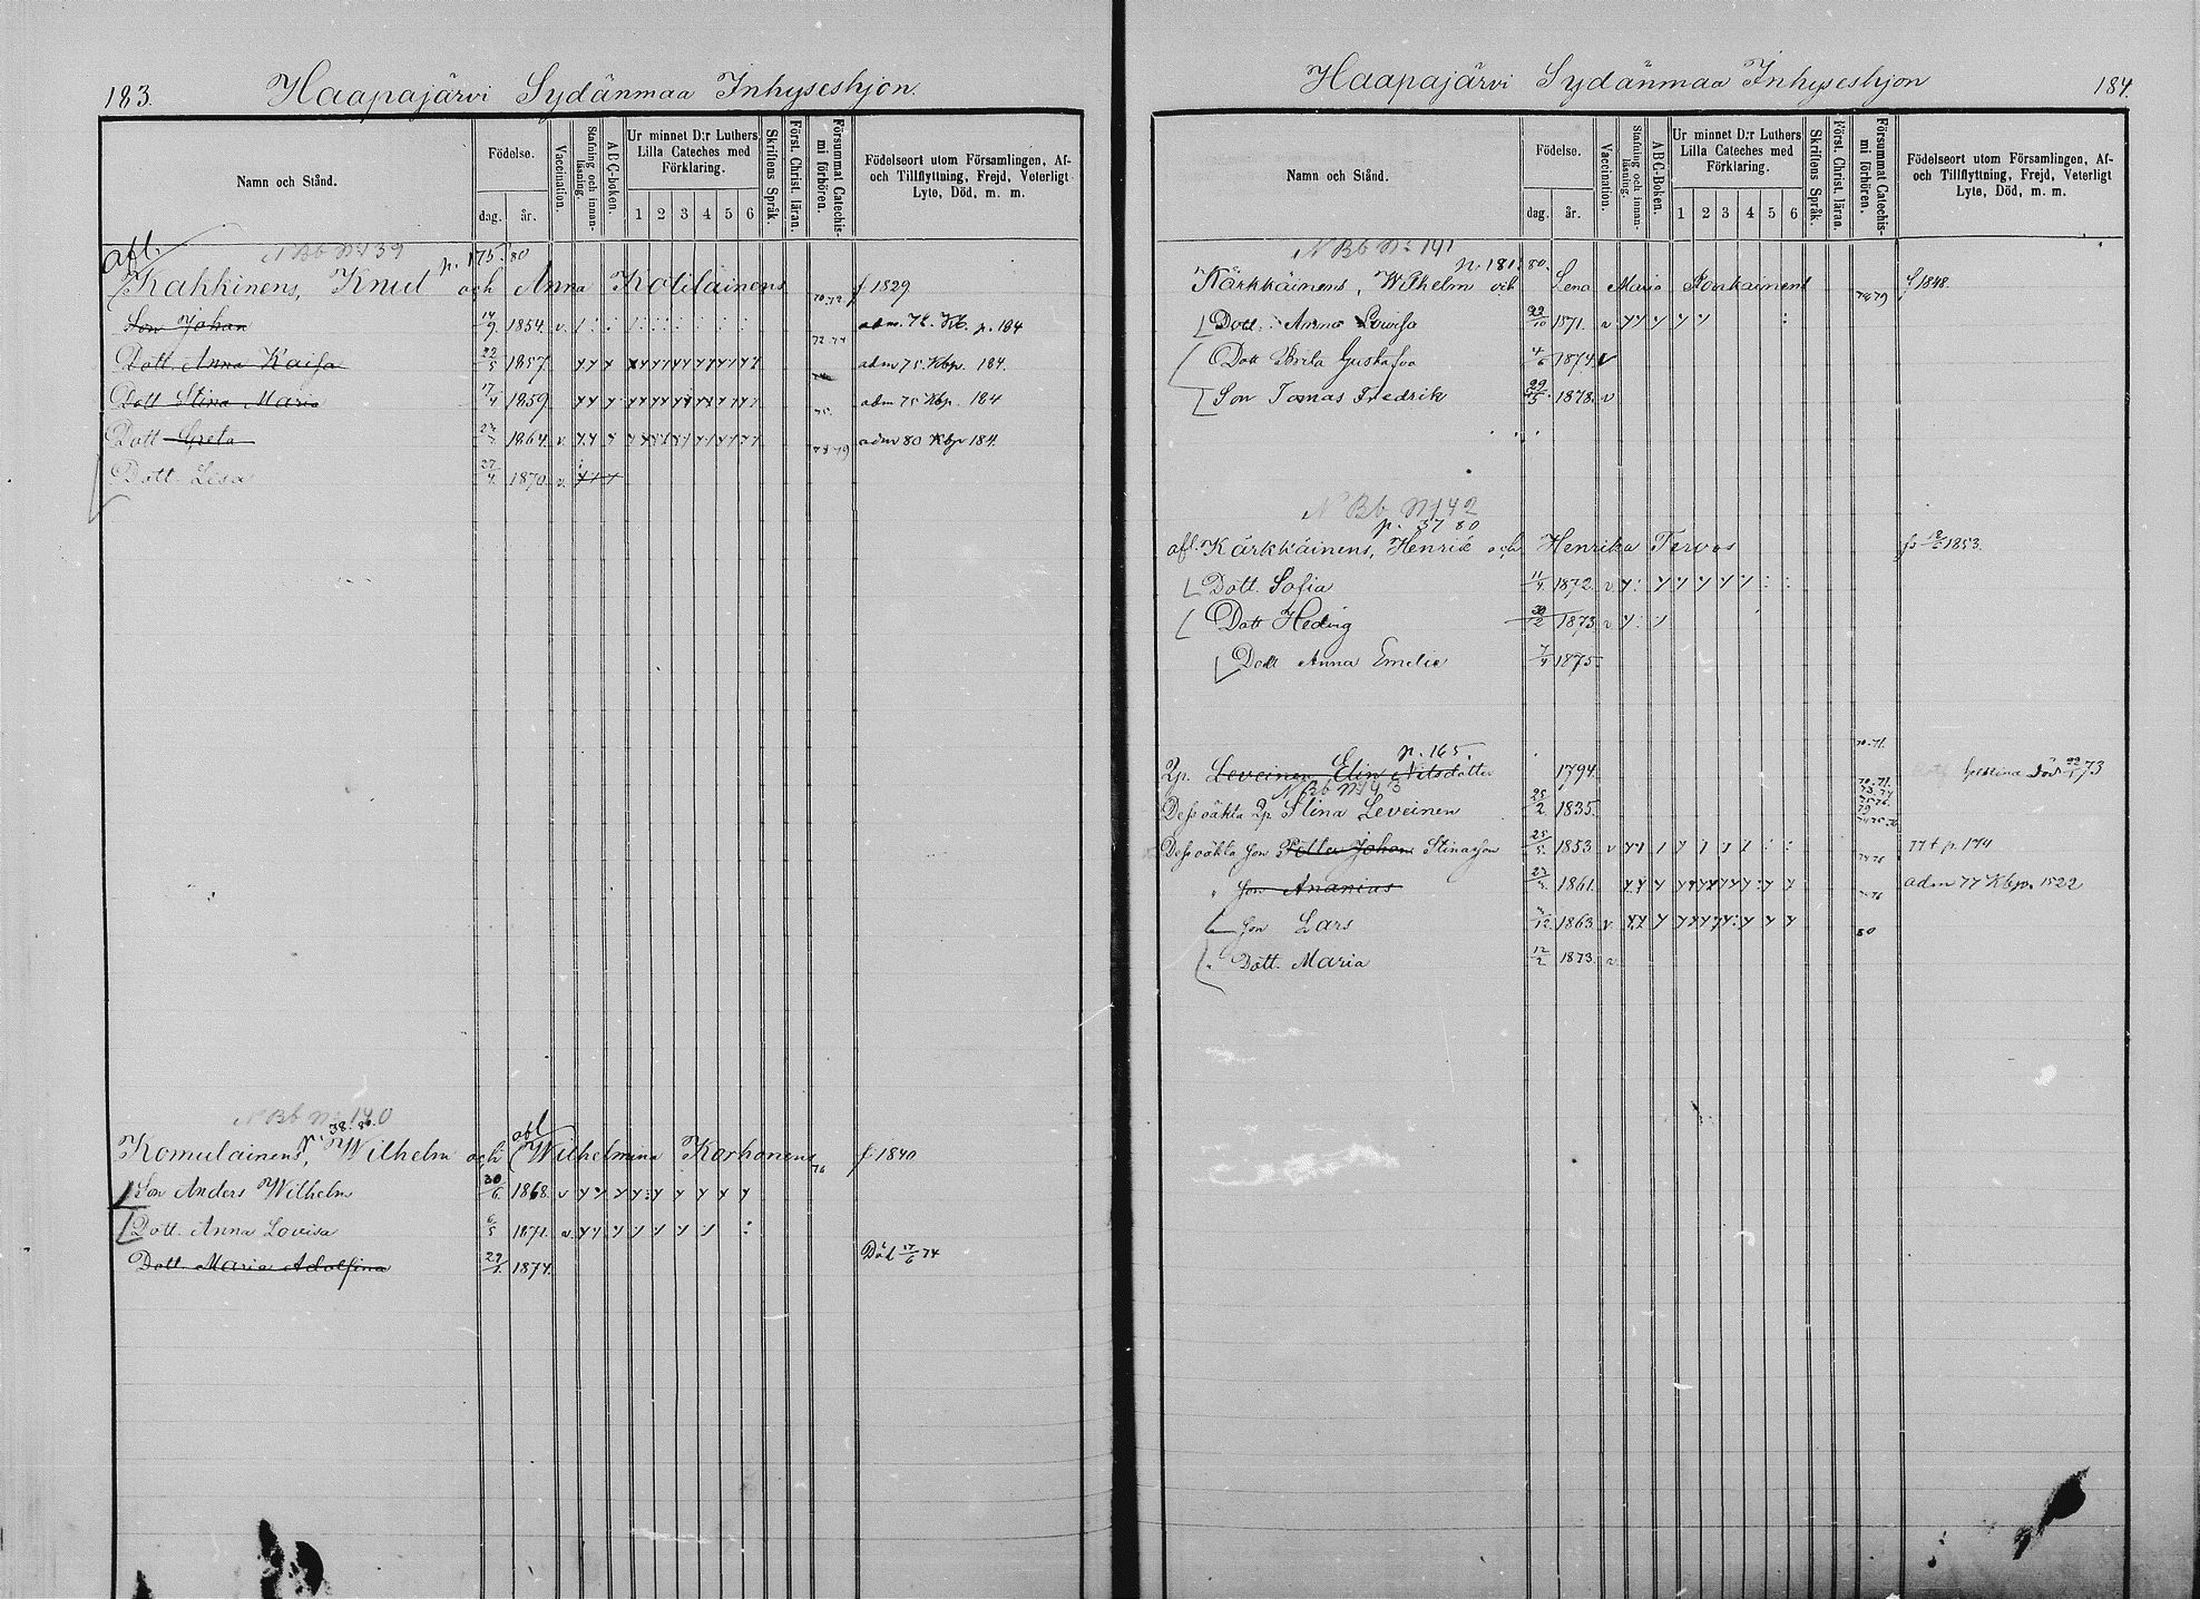 183.
Haapajärvi Sydänmaa Inhyseshjon.
Namn och Stånd.
Födelse.
dag.
år.
Vaccination.
Stafning och innanläsning.
ABC-boken.
Ur minnet D:r Luthers Lilla Cateches med Förklaring.
1 2 3 4 5 6
Skriftens Språk.
Först. Christ. läran.
Försummat Catechismi förhören.
Födelseort utom Församlingen, Af- och Tillflyttning, Frejd, Veterligt Lyte, Död, m. m.
afl. NBb No 139
p. 175. 80
Kahkinens, Knut och Anna Kotilainens 70.72 f 1829
Son Johan 14/9 1854. v. 72.74 adm. 76. Kb. p. 184
Dott. Anna Kaisa 22/5 1857 adm 75 Kbp. 184.
Dott Stina Maria 17/4 1859 75. adm 75 Kbp. 184
Dott Greta 1864. v. 78 79 adm 80 Kbp 184.
Dott. Lisa 27/4 1870 v.
NBb No 140
p. 38. 80.
afl
Komulainens, Wilhelm och Wilhelmina Korhonens 76 f 1840
Son Anders Wilhelm 30/6 1868 v
Dott. Anna Lovisa 6/5 1871. v.
Dott. Maria Adolfina 1874. Död 17/6 74
Haapajärvi Sydänmaa Inhyseshjon
184.
Namn och Stånd.
Födelse.
dag.
år.
Vaccination.
Stafning och innanläsning.
ABC-Boken.
Ur minnet D:r Luthers Lilla Cateches med Förklaring.
1 2 3 4 5 6
Skriftens Språk.
Först. Christ. läran.
Försummat Catechismi förhören.
Födelseort utom Församlingen, Af- och Tillflyttning, Frejd, Veterligt Lyte, Död, m. m.
NBb No 141
p. 181. 80.
Kärkkäinens, Wilhelm och Lena Maria 78 79 f 1848.
Dott. Anna Lovisa 22/10 1871. v
Dott Brita Gustafva 4/6 1874 v
Son Tomas Fredrik 29/5 1878. v
NBb No 142
p. 37 80
afl. Kärkkäinens, Henrik och Henrika Tervos 1853.
Dott. Sofia 11/4 1872. v
Dott Hedvig 1873 v
Dott Anna Emelie 7/4 1875
p. 165
70-71.
Qp. Leveinen, Elin Nilsdotter 1794. Död 22/1 73
NBb No 143
Dess oäkta Qp. Stina Leveinen 25/2 1835.
Dess oäkta son Petter Johan Stinasson 25/5 1853 v 77 t p. 174
" son Ananias 1861. adm 77 Kbp. 1522
" son Lars 1863. v. 80
" Dott. Maria 12/2 1873 v